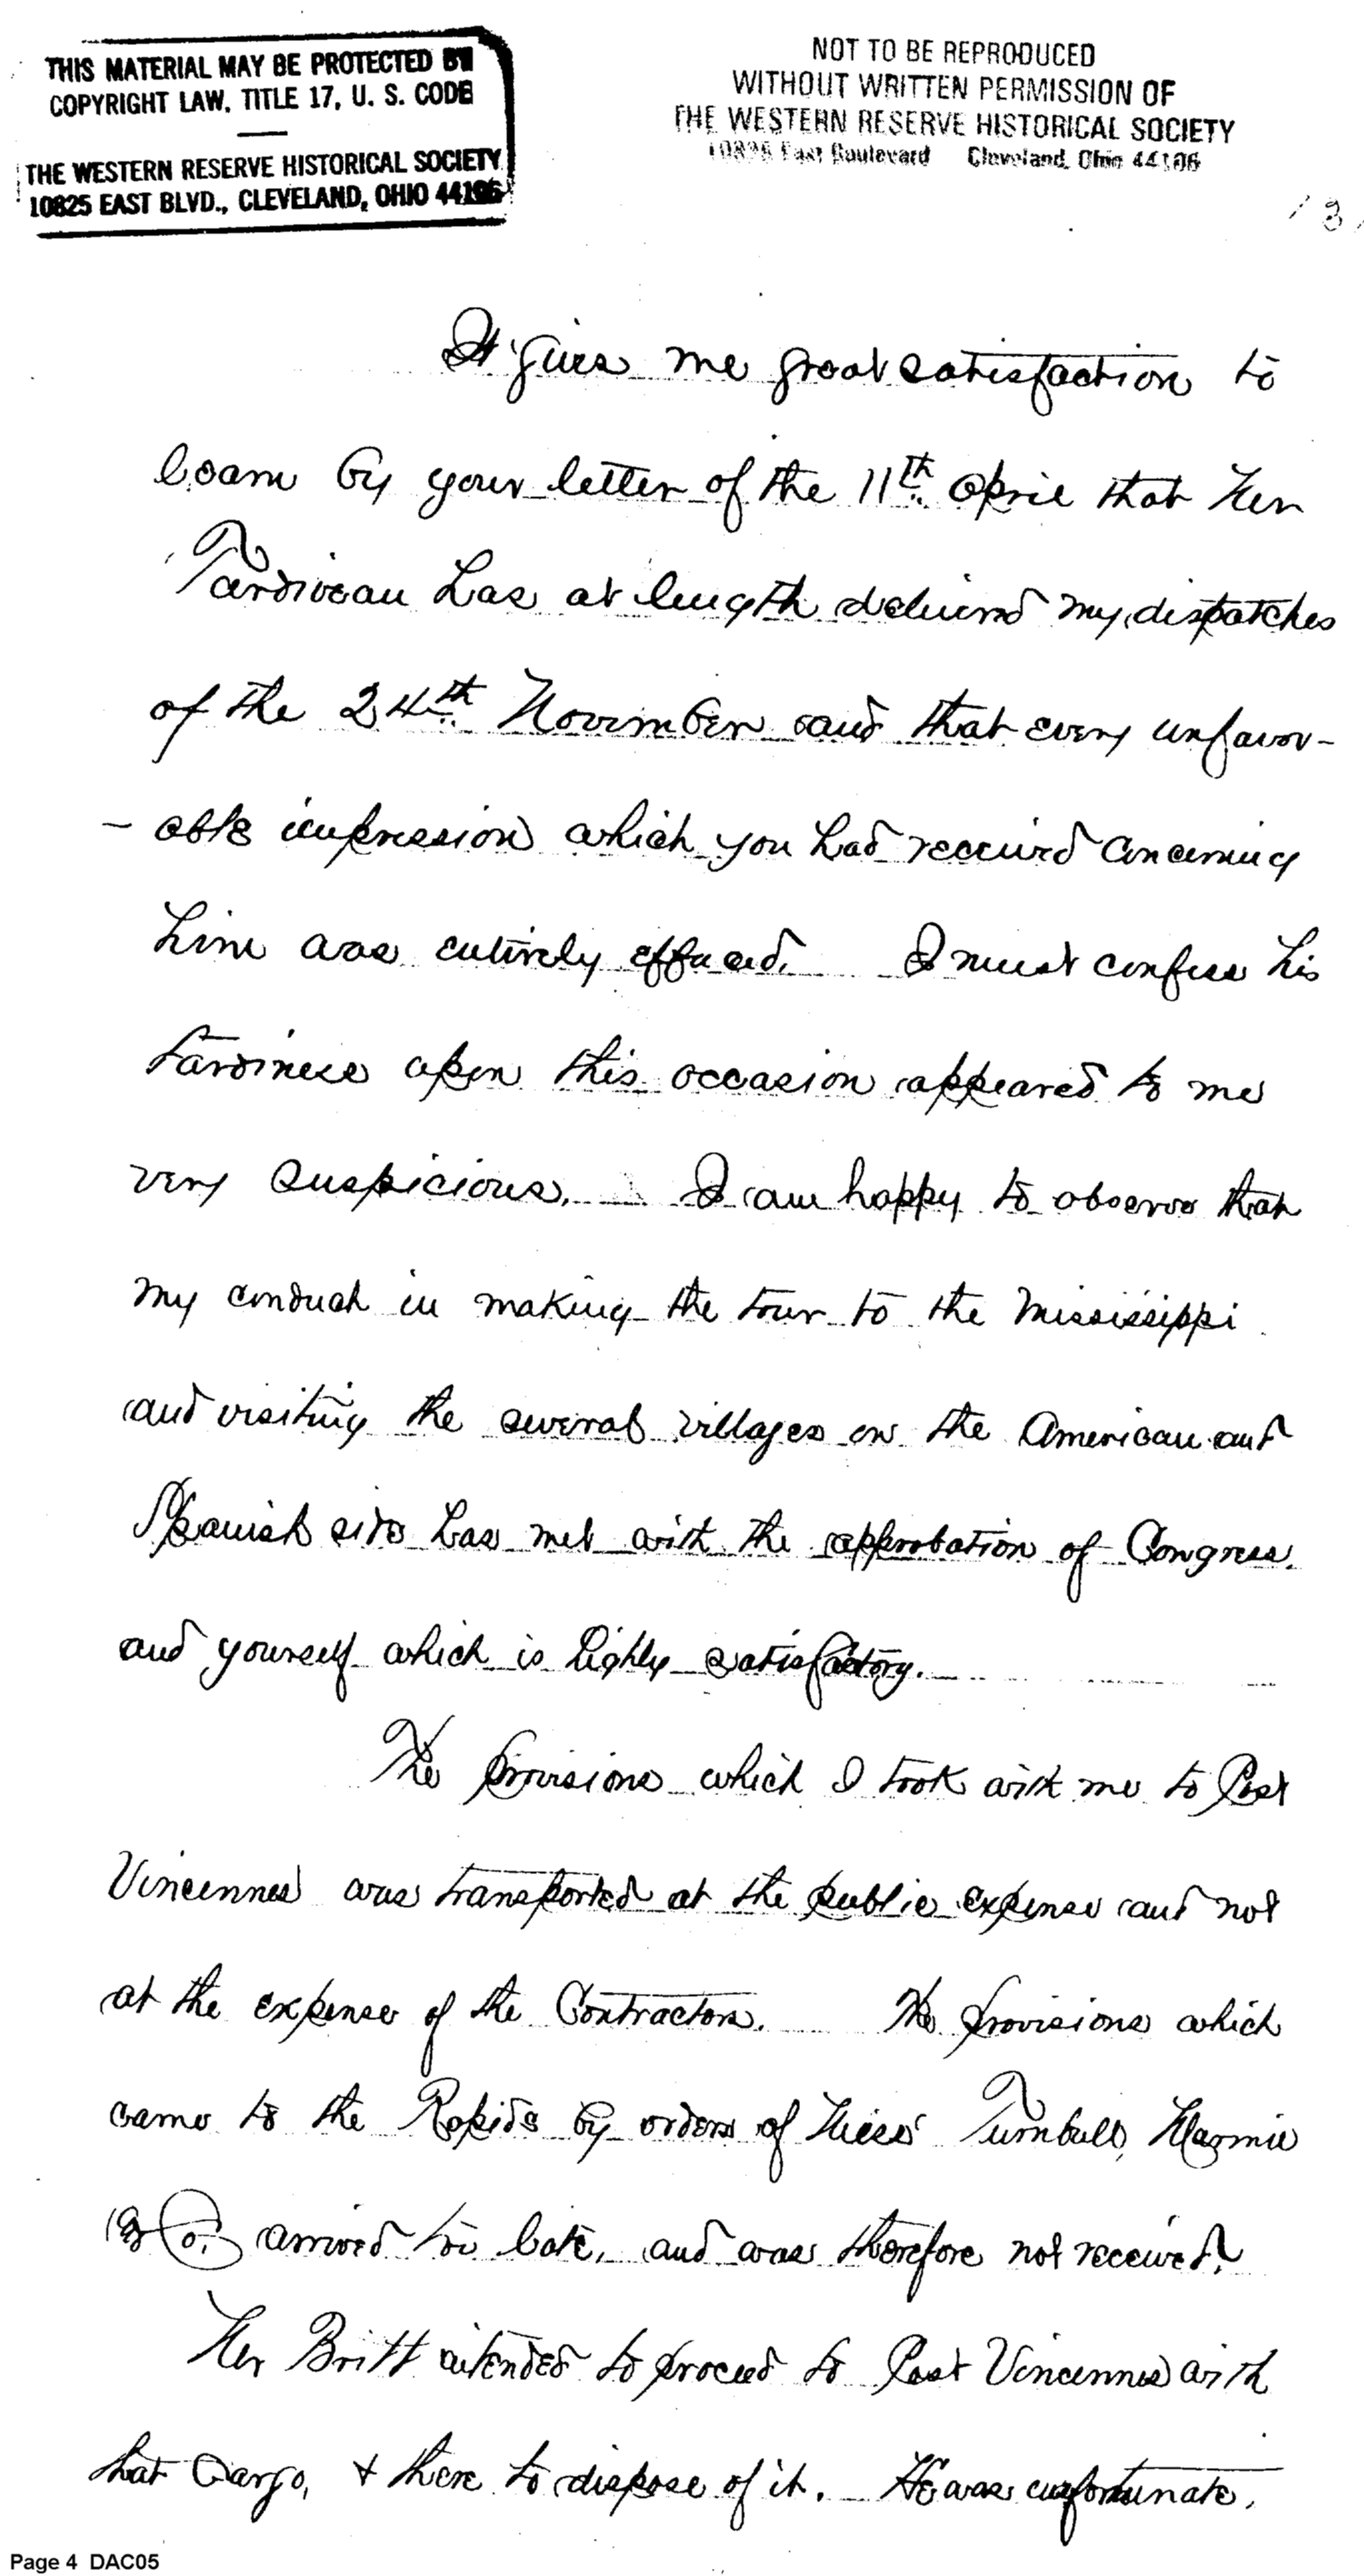 THIS MATERIAL MAY BE PROTECTED BY
COPYRIGHT LAW. TITLE 17, U. S. CODE
THE WESTERN RESERVE HISTORICAL SOCIETY
10825 EAST BLVD., CLEVELAND, OHIO 44106
NOT TO BE REPRODUCED
WITHOUT WRITTEN PERMISSION OF
THE WESTERN RESERVE HISTORICAL SOCIETY
10825 East Boulevard Cleveland, Ohio 44106
It gives me great satisfaction to
learn by your letter of the 11th April that Mr
Tardiveau has at length delivered my dispatches
of the 24th November and that every unfavor-
- able impression which you had received concerning
him was entirely effaced. I must confess his
tardiness upon this occasion appeared to me
very suspicious. I am happy to observe that
my conduct in making the tour to the Mississippi
and visiting the several villages on the American and
Spanish side has met with the approbation of Congress.
and yourself which is highly satisfactory.
The provisions which I took with me to Post
Vincennes was transported at the public expense and not
at the expense of the Contractors. The provisions which
came to the Rapids by orders of Messrs Turnbull, Marmie
& Co. arrived too late, and was therefore not received.
Mr Britt intended to proceed to Post Vincennes with
that Cargo, & there to dispose of it. He was unfortunate.
Page 4 DAC05